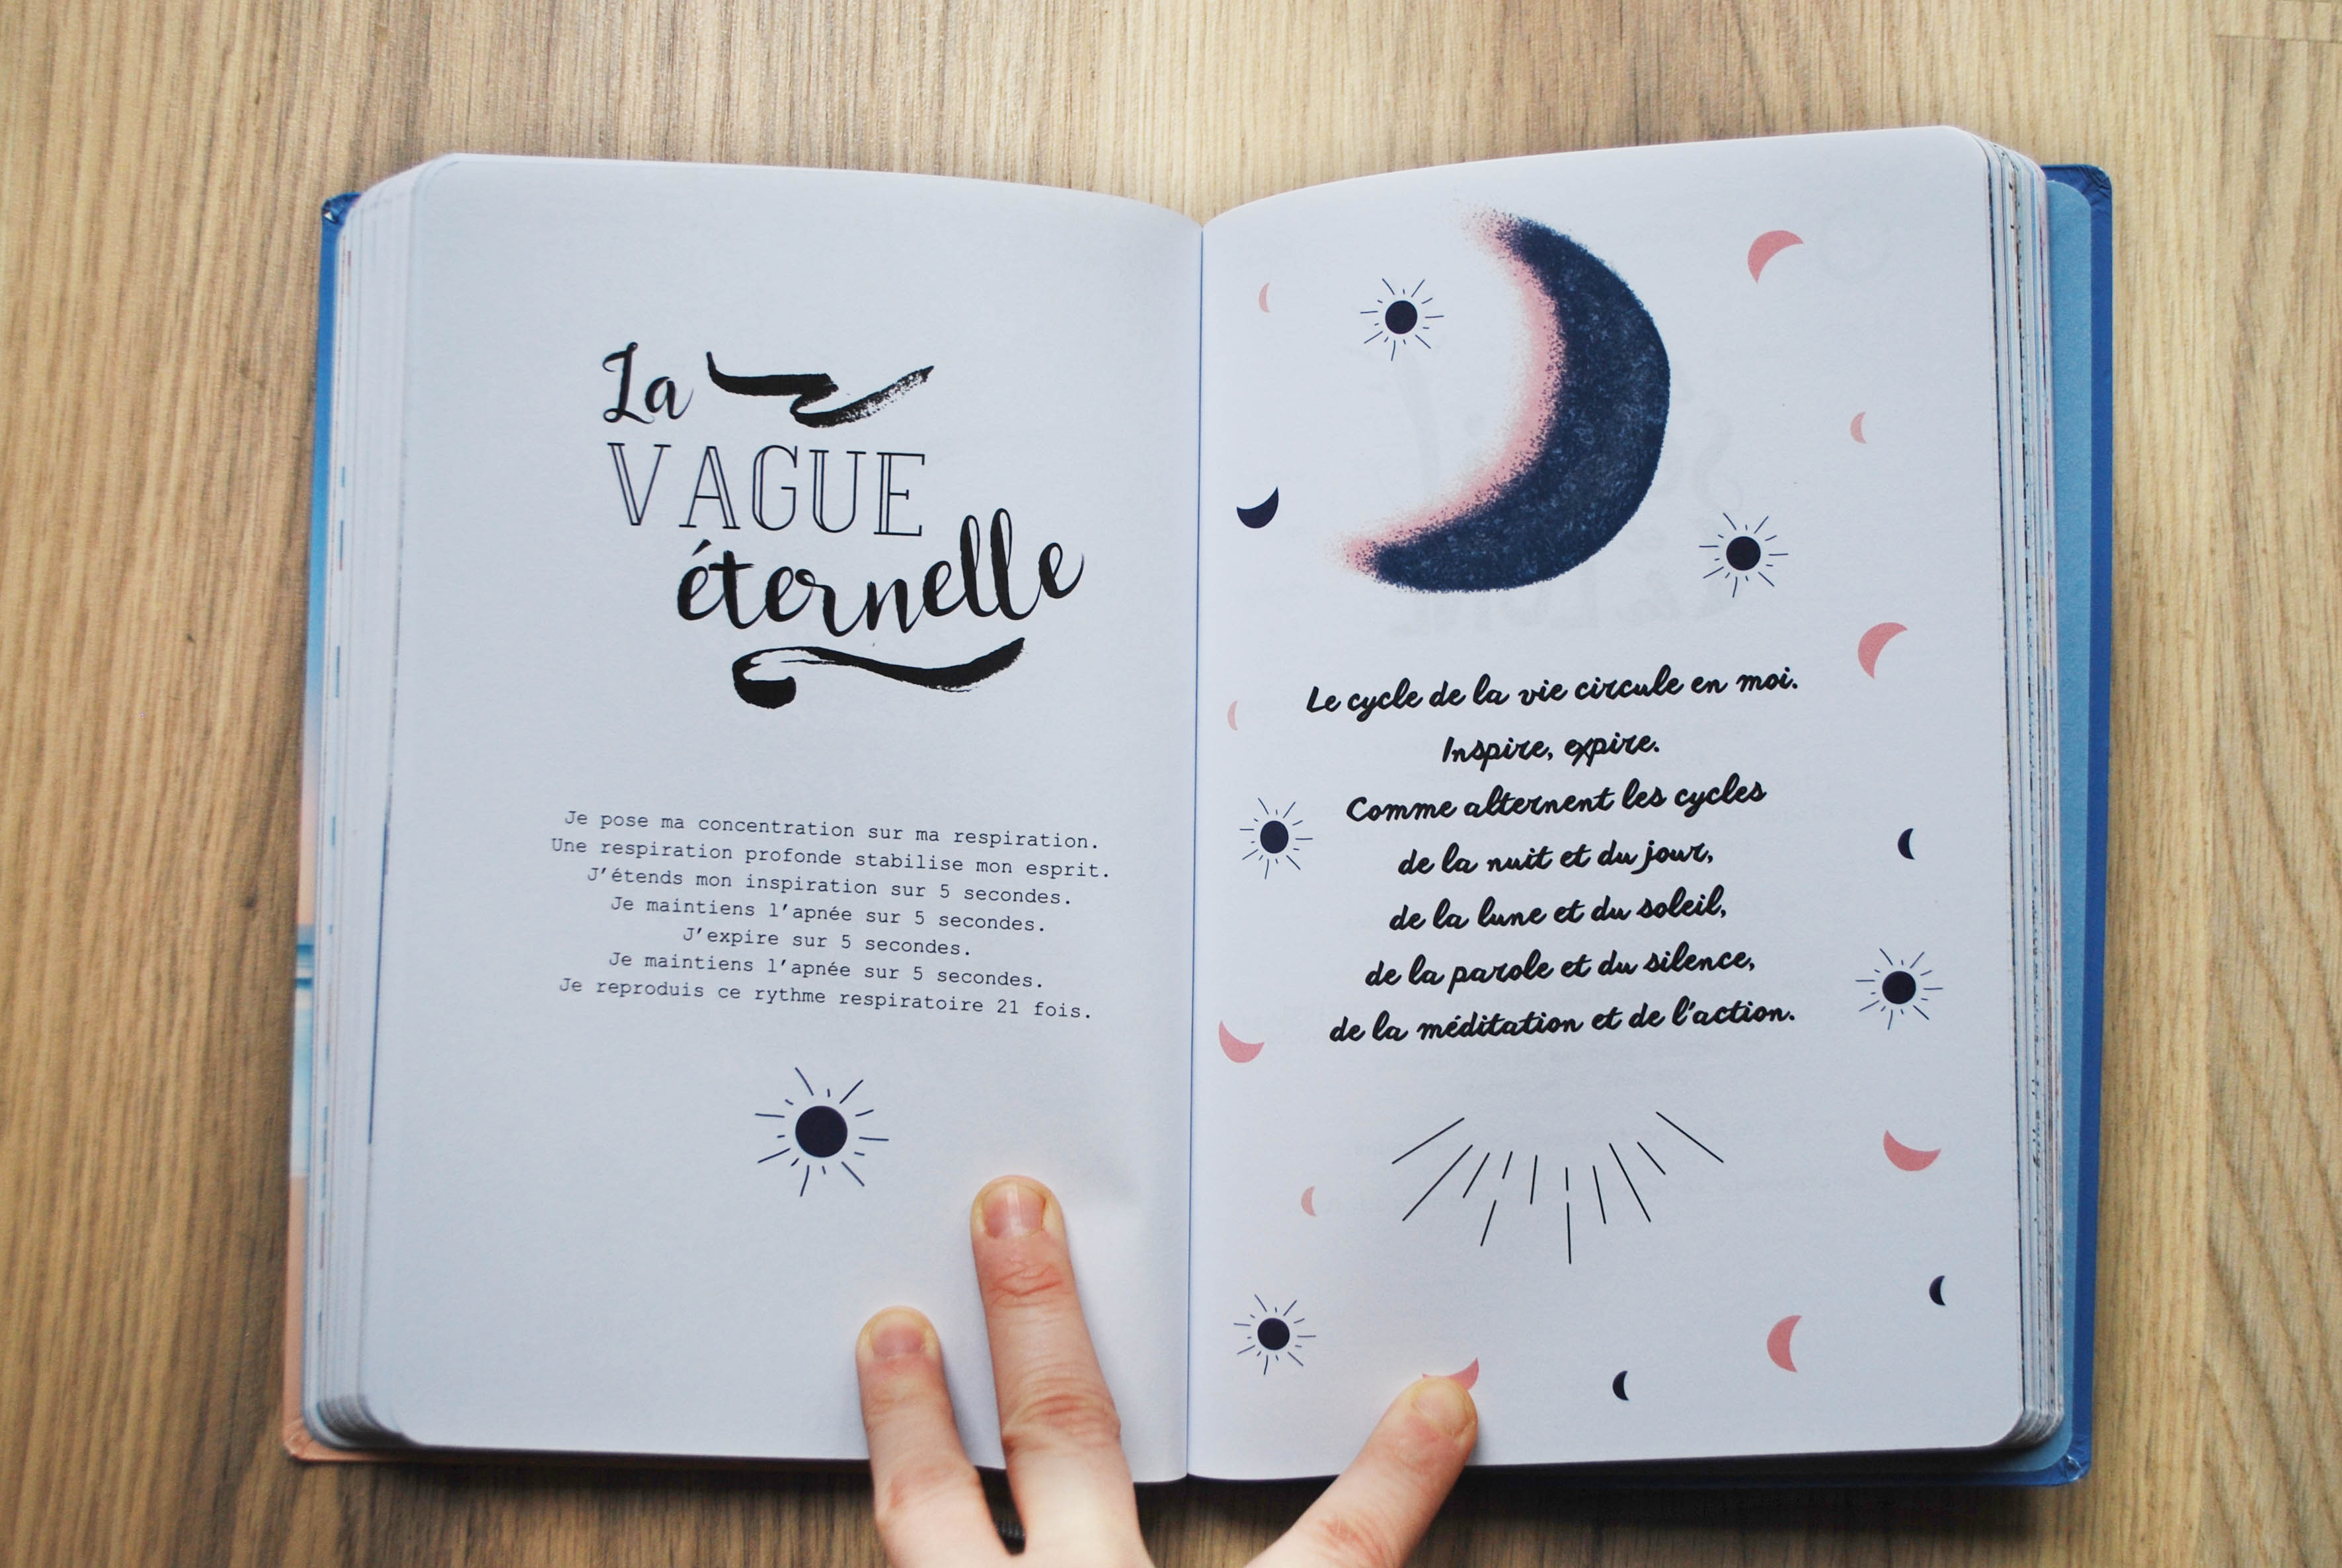 La
VAGUE
éternelle
Je pose ma concentration sur ma respiration.
Une respiration profonde stabilise mon esprit.
J'étends mon inspiration sur 5 secondes.
Je maintiens l'apnée sur 5 secondes.
J'expire sur 5 secondes.
Je maintiens l'apnée sur 5 secondes.
Je reproduis ce rythme respiratoire 21 fois.
Le cycle de la vie circule en moi.
Inspire, expire.
Comme alternent les cycles
de la nuit et du jour,
de la lune et du soleil,
de la parole et du silence,
de la méditation et de l'action.